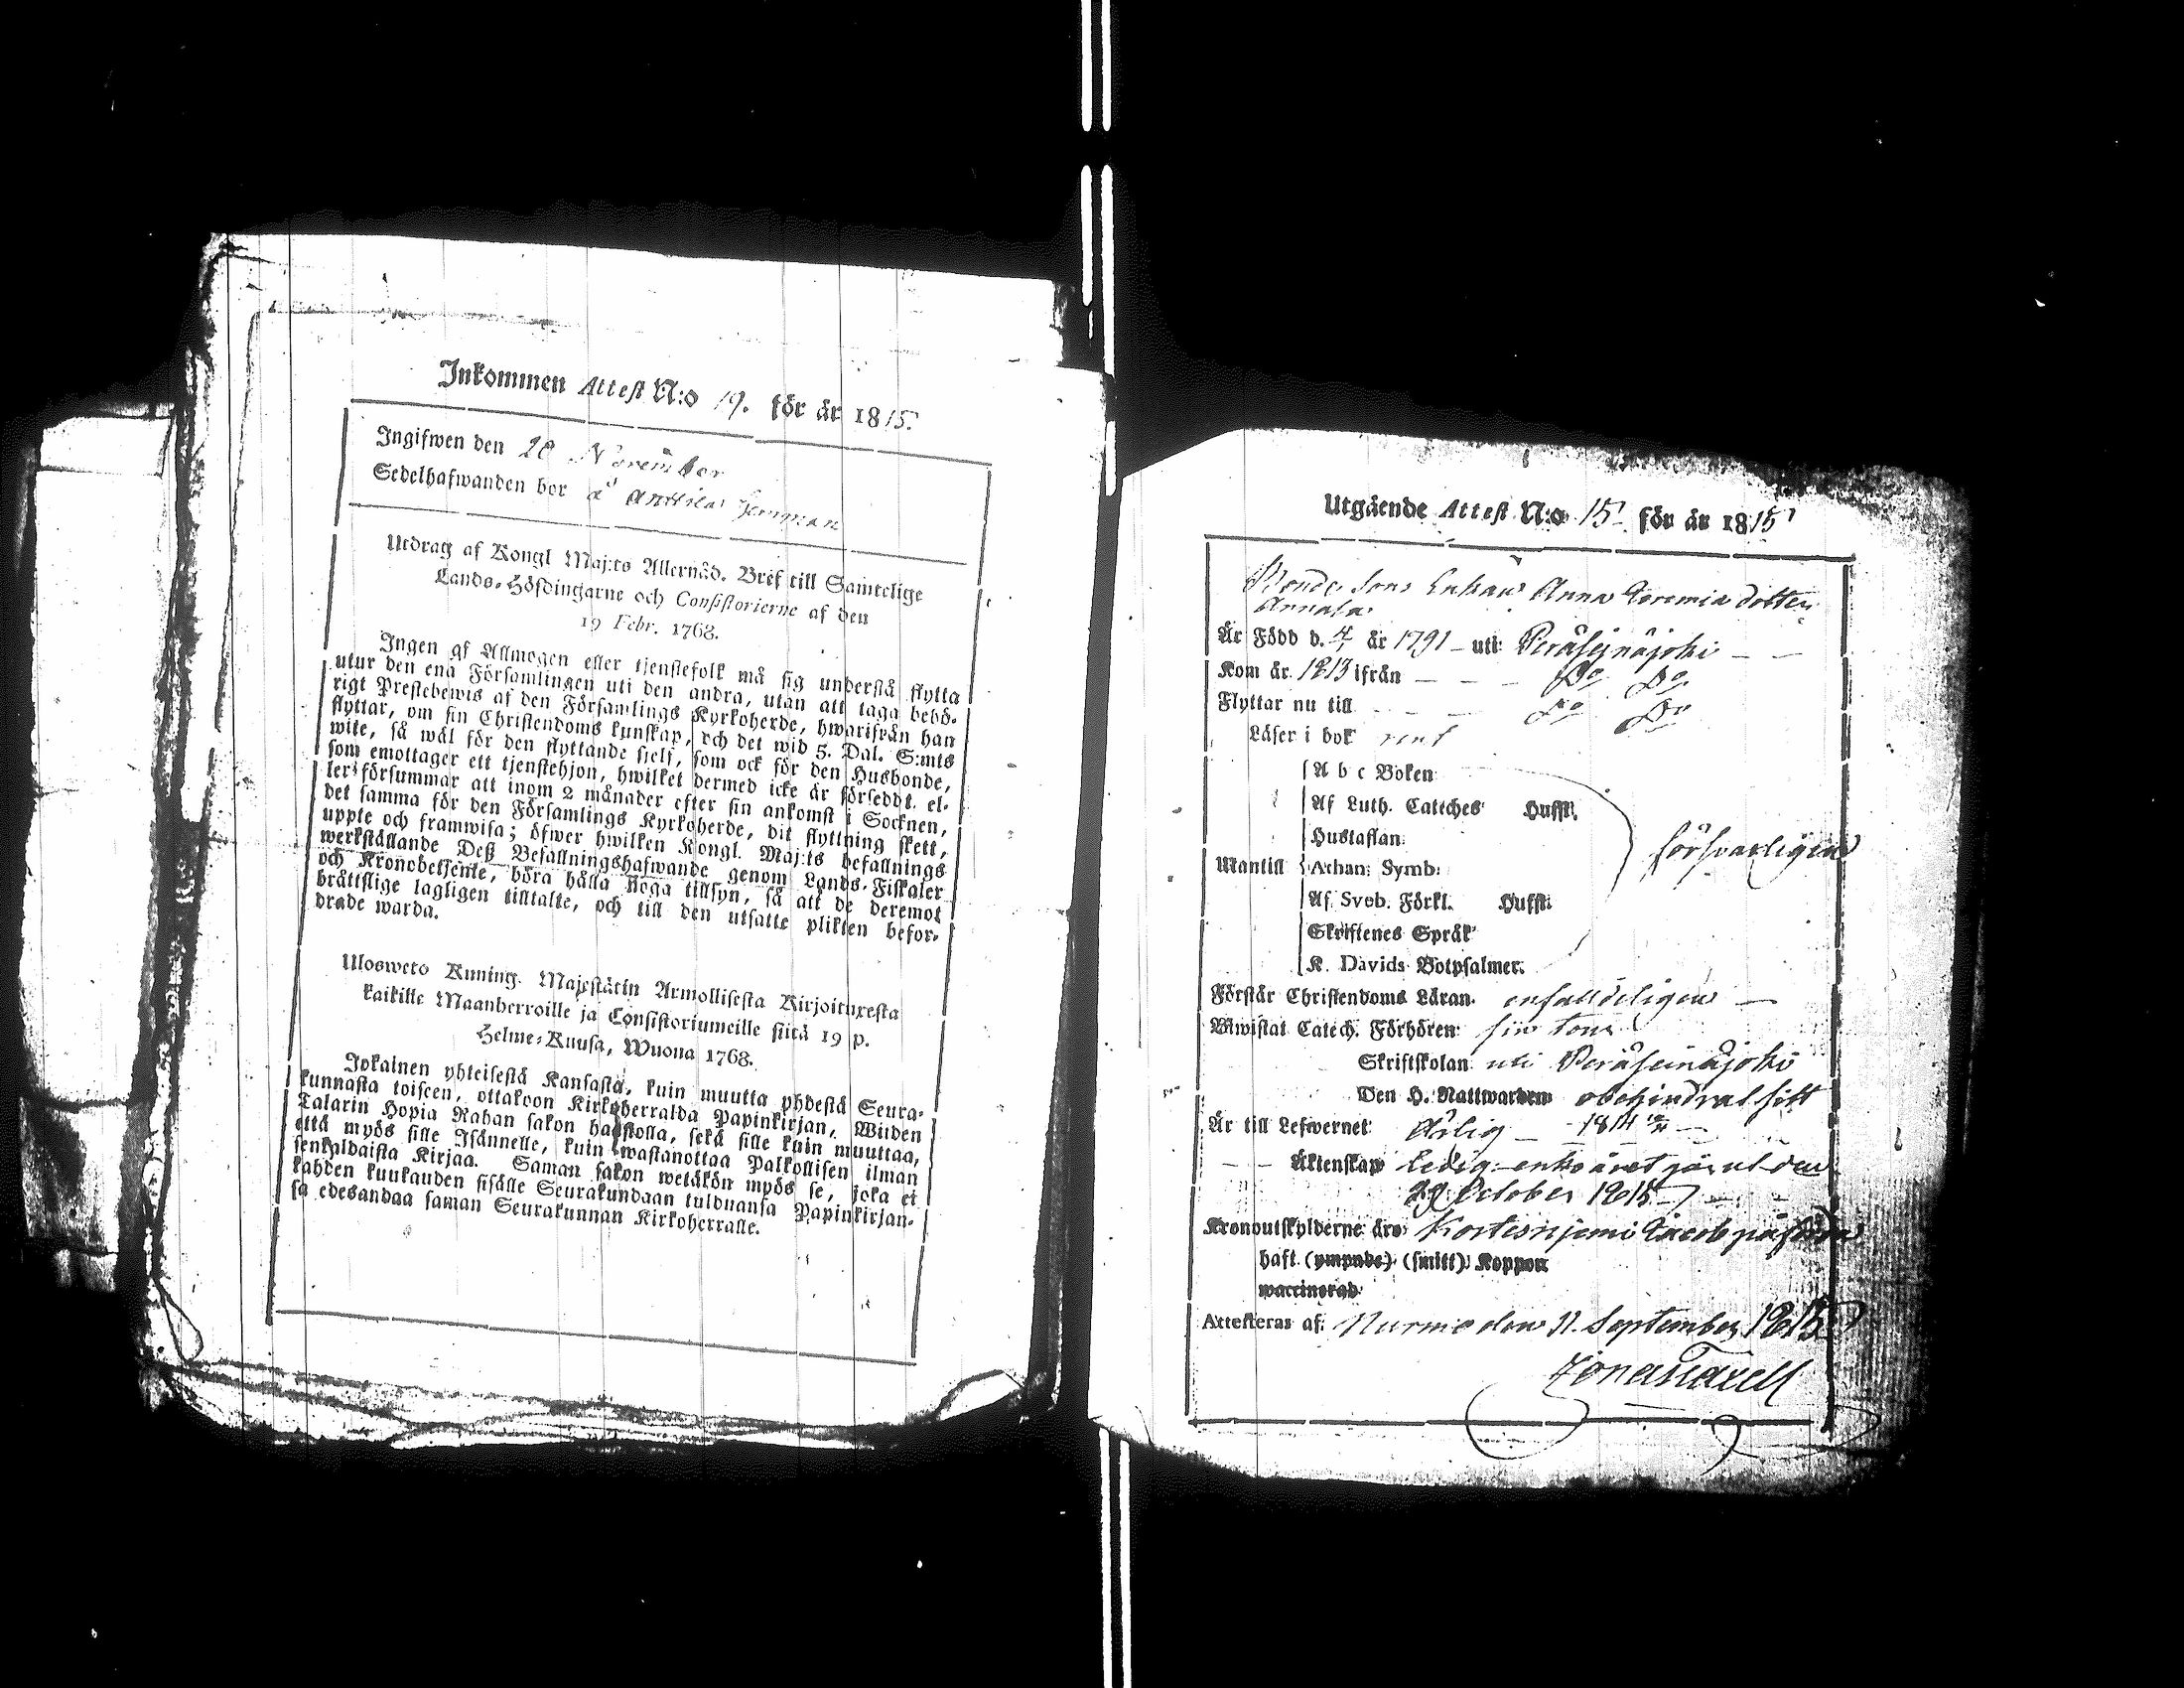 Inkommen Attest N:o 19. för år 1815.
Ingifwen den 20 November
Sedelhafwanden bor å Anttila
Utdrag af Kongl Maj:ts Allernåd. Bref till Samtelige
Lands-Höfdingarne och Consistorierne af den
19 Febr. 1768.
Ingen af Allmogen eller tjenstefolk må sig understå flytta
utur den ena Församlingen uti den andra, utan att taga behö-
rigt Prestebewis af den Församlings Kyrkoherde, hwarifrån han
flyttar, om sin Christendoms kunskap, och det wid 5. Dal. S:mts
wite, så wäl för den flyttande sjelf, som ock för den Husbonde,
som emottager ett tjenstehjon, hwilket dermed icke är försedt. el-
ler försummar att inom 2 månader efter sin ankomst i Socknen,
det samma för den Församlings Kyrkoherde, dit flyttning skett,
uppte och framwisa; öfwer hwilken Kongl. Maj:ts befallnings
werkställande Deß Befallningshafwande genom Lands-Fiskaler
och Kronobetjente, böra hålla noga tillsyn, så att de deremot
bråttslige lagligen tilltalte, och till den utsatte plikten befor-
drade warda.
Ulosweto Kuning. Majestätin Armollisesta Kirjoituxesta
kaikille Maanherroille ja Consistoriumeille siitä 19 p.
Helme-Kuusa, Wuona 1768.
Jokainen yhteisestä Kansasta, kuin muutta yhdestä Seura-
kunnasta toiseen, ottakoon Kirkoherralda Papinkirjan, Wiiden
Talarin Hopia Rahan sakon haastolla, sekä sille kuin muuttaa,
että myös sille Isännelle, kuin wastanottaa Palkollisen ilman
senkaldaista Kirjaa. Saman sakon wetäkön myös se, joka ei
kahden kuukauden sisälle Seurakundaan tulduansa Papinkirjan-
sa edesandaa saman Seurakunnan Kirkoherralle.
Utgående Attest N:o 15 för år 1815
Bonde Sons Enkan Anna Jeremia dotter
Annala
Är Född d. 4 år 1791 - uti Peräseinäjoki - -
Kom år 1813 ifrån - - - Do Do
Flyttar nu till - - - Do Do
Läser i bok rent
A b c Boken
Af Luth. Catches Hufst.
Hustaflan
Utantill Athan: Symb: försvarligen
Af Sveb. Förkl. Hufst:
Skriftenes Språk
K. Davids Botpsalmer.
Förstår Christendoms Läran. enfalldeligen -
Biwistat Catech. Förhören sin tour
Skriftskolan uti Peräseinäjoki
Den H. Nattwarden obehindrat sitt
Är till Lefwernet Ärlig - 1814
- - Äktenskap ledig: enko året går ut den
29 October 1815 -
Kronoutskylderne äro Kortesnjemi Jacob påförda
haft (ympade) (smitt) Koppor
waccinerad
Attesteras af: Nurmo den 11. September 1815
Jonas Taxell